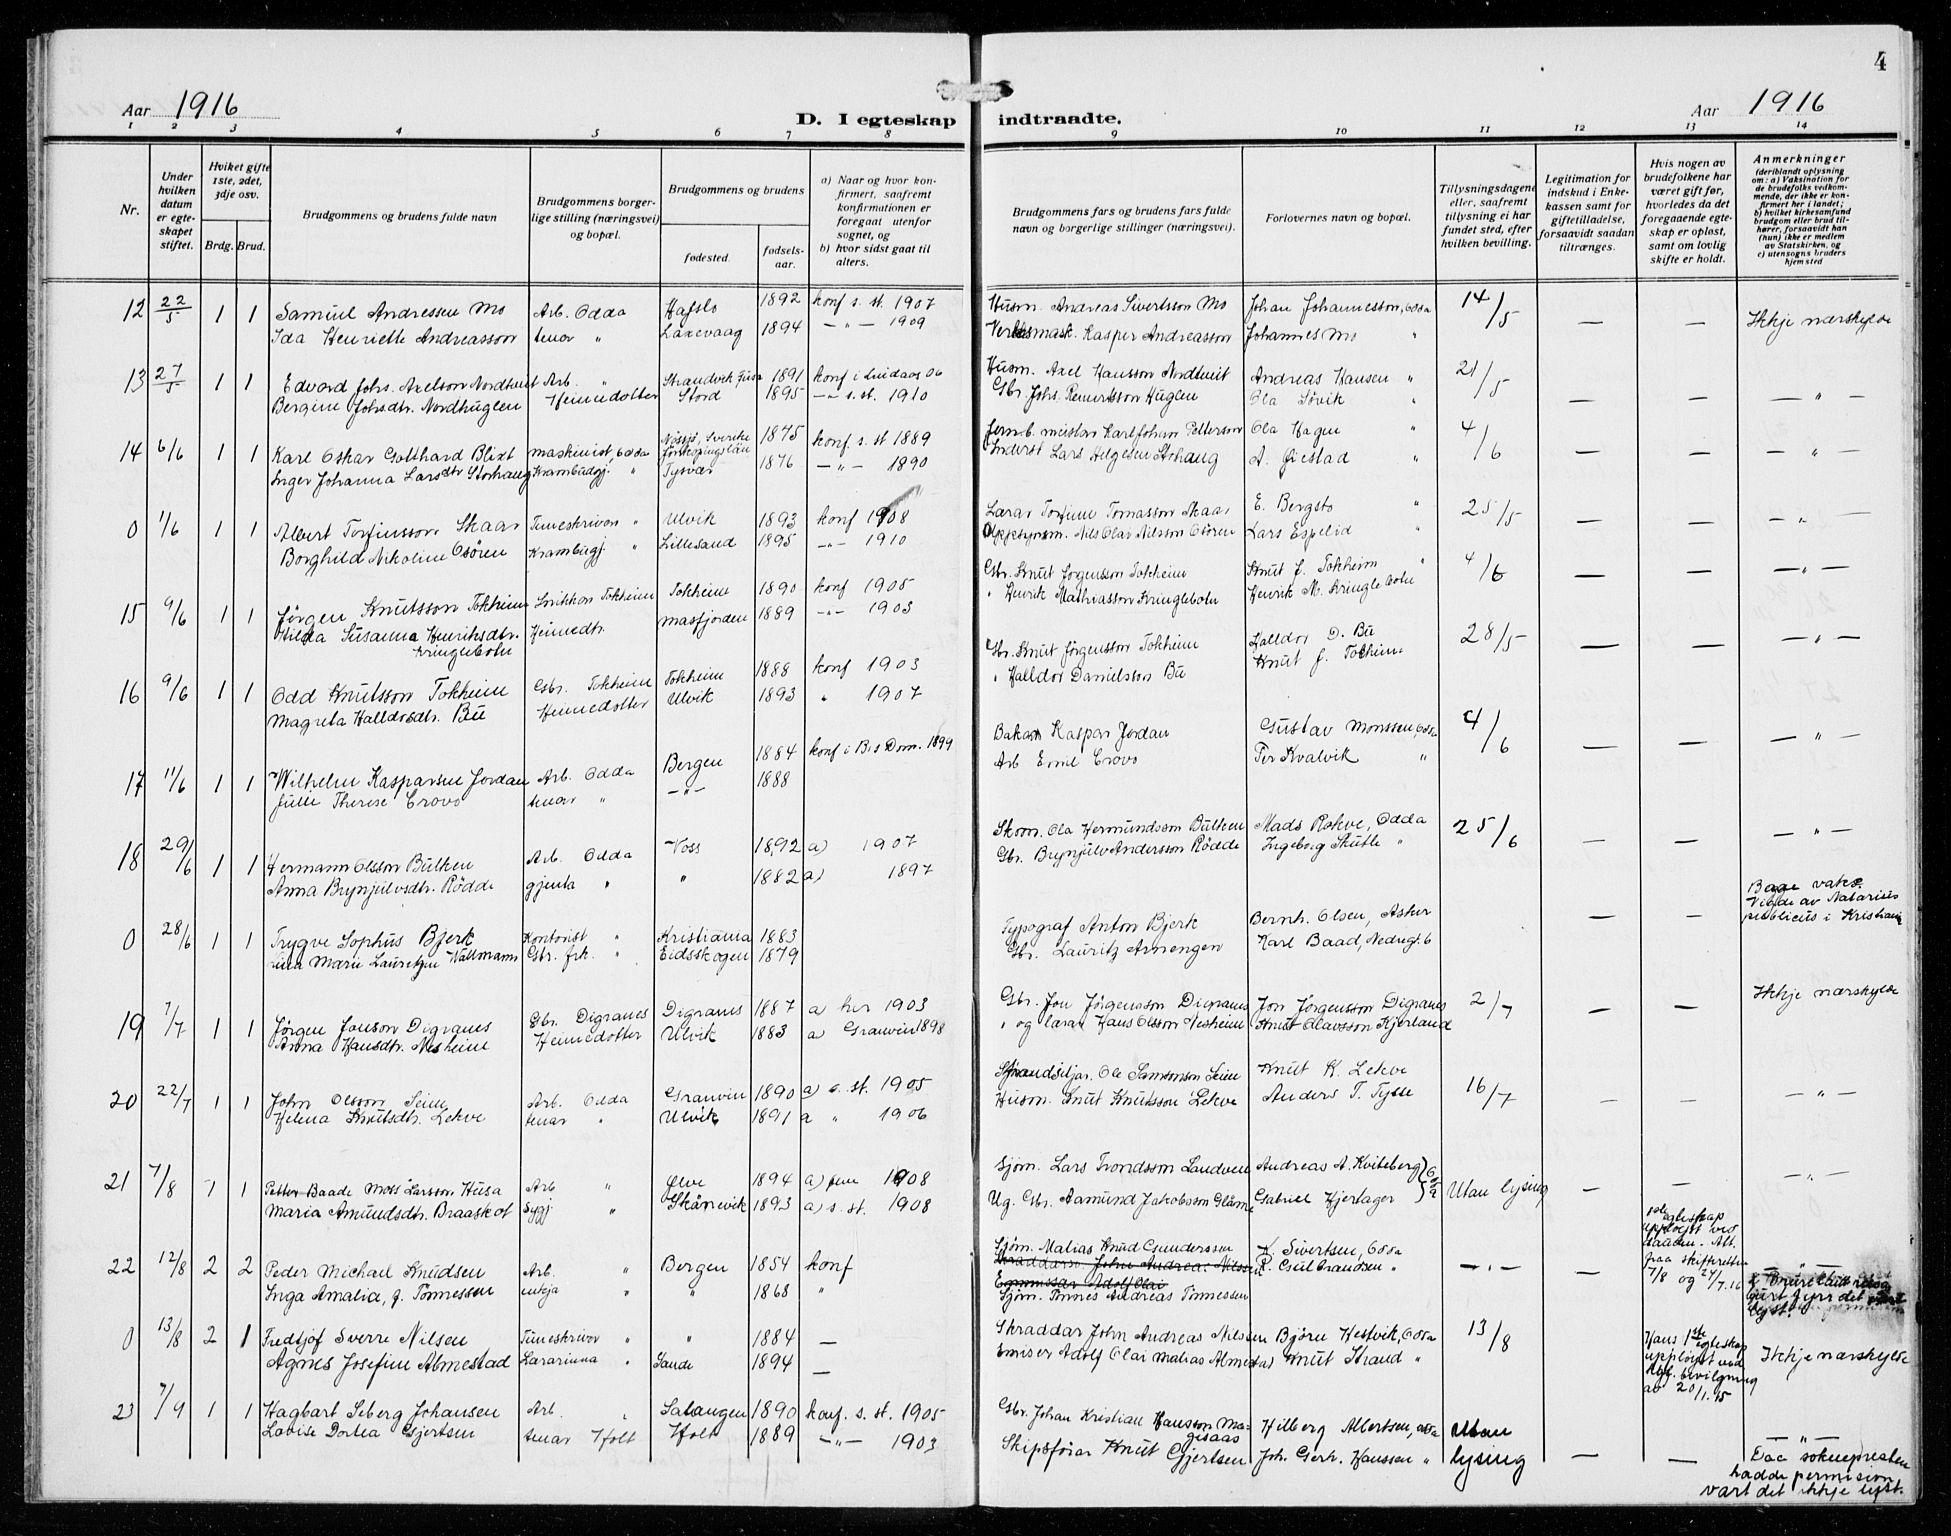 4
Aar 1916
D. I egteskap indtraadte.
Aar 1916
1 2 3 4 5 6 7 8 9 10 11 12 13 14
Nr.
Under hvilken datum er egteskapet stiftet.
Hviket gifte 1ste, 2det, 3dje osv.
Brdg. Brud.
Brudgommens og brudens fulde navn
Brudgommens borgerlige stilling (næringsvei) og bopæl.
Brudgommens og brudens
fødested. fødselsaar.
a) Naar og hvor konfirmert, saafremt konfirmationen er foregaat utenfor sognet, og
b) hvor sidst gaat til alters.
Brudgommens fars og brudens fars fulde navn og borgerlige stillinger (næringsvei).
Forlovernes navn og bopæl.
Tillysningsdagene eller, saafremt tillysning ei har fundet sted, efter hvilken bevilling.
Legitimation for indskud i Enkekassen samt for giftetilladelse, forsaavidt saadan tiltrænges.
Hvis nogen av brudefolkene har været gift før, hvorledes da det foregaaende egteskap er opløst, samt om lovlig skifte er holdt.
Anmerkninger (deriblandt oplysning om: a) Vaksination for de brudefolks vedkommende, der ikke er konfirmert her i landet; b) hvilket kirkesamfund brudgom eller brud tilhører, forsaavidt han (hun) ikke er medlem av Statskirken, og c) utensogns bruders hjemsted
12 22/5 1 1 Samuel Andressen Mo Arb. Odda Hafslo 1892 konf s. st. 1907 Husm. Andreas Sivertsson Mo Johan Johannesson, Odda 14/5 — — Ikkje nærskylde
Ida Henriette Andreasson tenar " Laxevaag 1894 — " — 1909 Verksmask. Kasper Andreasson Johannes Mo "
13 27/5 1 1 Edvard Johs. Axelson Nordtveit Arb. " Strandvik Fusa 1891 konf i 06 Husm. Axel Hansson Nordtveit Andreas Hansen " 21/5 — — — " —
Bergine Johsdtr. Nordhuglen Heimedotter Stord 1895 — " — s. st. 1910 Gbr. Johs. Reinertsson Huglen Ola Søvik "
14 6/6 1 1 Karl Oskar Gotthard Blixt maskinist, Odda Nässjö, Sverike Jönköpingslän 1875 konf. s. st 1889 Jernb. meistar Karl Johan Petterson Ola Hagen " 4/6 — — — " —
Inger Johanna Larsdtr Storhaug Krambudgj. " Tysvær 1876 — " — 1890 Inderst Lars Helgesen Storhaug A. Øiestad "
0 1/6 1 1 Albert Torfinsson Skaar Timeskrivar " Ulvik 1893 konf 1908 Lærar Torfinn Tomasson Skaar E. Bergsto " 25/5 — — — " —
Borghild Nikoline Osören Krambugj. " Lillesand 1895 — " — 1910 Oppsynsm. Nils Olai Nilsson Osören Lars Espelid "
15 9/6 1 1 Jørgen Knutsson Tokheim Snikkar Tokheim Tokheim 1890 konf 1905 Gbr. Knut Jørgensson Tokheim Knut J. Tokheim " 4/6 — — — " —
Hilda Susanna Henriksdtr. Kringlebotn Heimedtr. Masfjorden 1889 — " — 1903 " Henrik Mathiasson Kringlebotn Henrik M. Kringlebotn
16 9/6 1 1 Odd Knutsson Tokheim Gbr. Tokheim Tokheim 1888 konf 1903 Gbr. Knut Jørgensson Tokheim Halldor D. Bu 28/5 — — — " —
Magreta Halldorsdtr. Bu Heimedotter Ulvik 1893 " 1907 " Halldor Danielsson Bu Knut J. Tokheim
17 11/6 1 1 Wilhelm Kasparsen Jordan Arb. Odda Bergen 1884 konf i Bis Dom. 1899 Bakar Kaspar Jordan Gustav Monssen, Odda 4/6 — — — " —
Julie Therese Crovo tenar " — " — 1888 Arb Emil Crovo Per Kvalvik "
18 29/6 1 1 Hermann Olsson Bulken Arb. Odda Voss 1892 a) 1907 Skom. Ola Hermundsson Bulken Mads Rokve, Odda 25/6 — — — " —
Anna Brynjulvsdtr. Rödde gjenta " " 1882 a) 1897 Gbr. Brynjulv Andersson Rödde Ingeborg Skutle "
0 28/6 1 1 Trygve Sophus Bjerk Kontorist " Kristiania 1883 Typograf Anton Bjerk Bernh. Olsen, Asker — — Begge vaks. Vigde av Notarius publicus i Kristiania
Lina Marie Lauretzen Wallmann Gbr. frk. " Eidsskogen 1879 Gbr. Lauritz Arnengen Karl Baad, Nedregt. 6
19 7/7 1 1 Jørgen Jonson Digranes Gbr. Digranes Digranes 1887 a) her 1903 Gbr. Jon Jørgensson Digranes Jon Jørgensson Digranes 2/7 — — Ikkje nærskylde
Anna Hansdtr. Nesheim Heimedotter Ulvik 1883 a) Granvin 1898 " og lærar Hans Olsson Nesheim Knut Olavsson Kjerland
20 22/7 1 1 John Olsson Seim Arb. Odda Granvin 1890 a) s. st. 1905 Strandsitjar. Ole Samsonson Seim Knut K. Lekve 16/7 — — — " —
Helena Knutsdtr. Lekve tenar " Ulvik 1891 a " 1906 Husm. Knut Knutsson Lekve Anders T. Tysse
21 7/8 1 1 Petter Baade Moss Larsson Husa Arb " Ølve 1894 a) 1908 Sjøm. Lars Trondsson Landven Andreas A. Kviteberg } Odda Utan lysing — — — " —
Maria Amundsdtr. Braaskot Sygj " Skånevik 1893 a) s. st. 1908 Ug. Gbr. Aamund Jakobsson Gabriel Hjertager
22 12/8 2 2 Peder Michael Knudsen Arb. " Bergen 1854 konf Sjøm. Matias Knud Gundersen K. Sivertsen, Odda — " — — 1ste egteskap upployst ved dauden. Att. fraa skifteretten 7/8 og 24/7.16 — " —
Skraddar John Andreas Nilssen R. Gulbrandsen "
Inga Amalia, f. Tønnessen enkja " " 1868 " Adolf Olai
Sjøm. Tønnes Andreas Tønnessen
0 13/8 2 1 Fredtjof Sverre Nilsen Timeskrivar " " 1884 — Skraddar John Andreas Nilsen Björn Hestvik, Odda 13/8 Hans 1ste egteskap upployst ved kgl. bevilgning av 20/1.15 Ikkje nærskylde
Agnes Josefine Almestad Lærarinna " Sande 1894 — Adolf Olai Matias Almestad Knut Strand "
23 7/9 1 1 Hagbart Seberg Johansen Arb. " Salangen 1890 konf. s. st. 1905 Gbr. Johan Kristian Hansson Magisaas Hilberg Albertsen, Odda Utan lysing — — — " —
Lovise Dortea Gjertsen tenar Holt Holt 1889 — " — 1903 Skipsførar Knut Gjertsen Joh. Gerh. Hanssen " Daa soknepresten hadde permision vart det ikkje lyst.